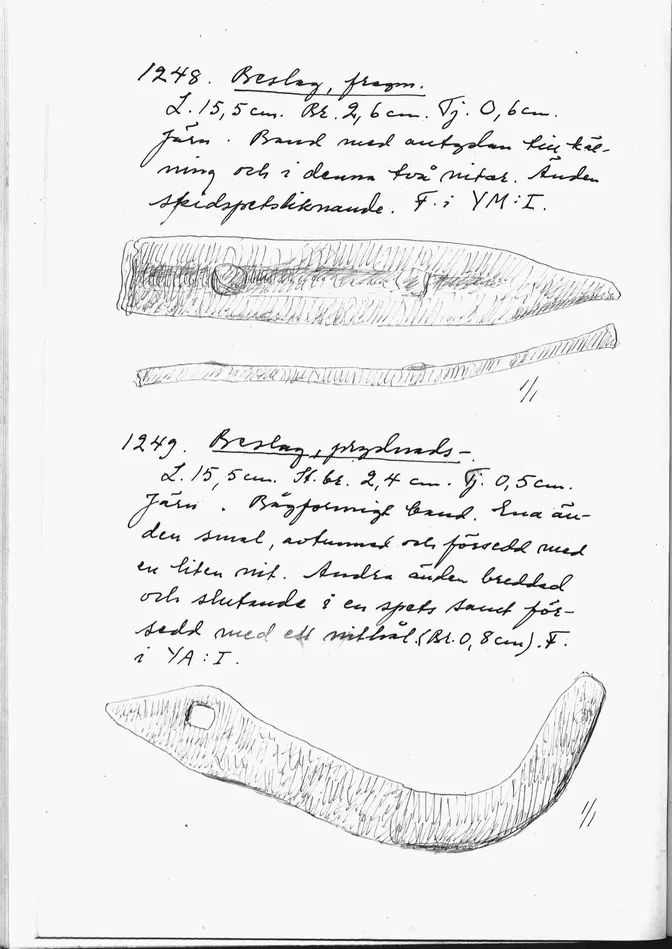 1248. Beslag, fragm.
L. 15,5 cm. Br. 2,6 cm. Tj. 0,6 cm.
Järn. Band med antydan till käl-
ning och i denna två nitar. Änden
skidspetsliknande. F. i YM:I.
1/1
1249. Beslag, prydnads-.
L. 15,5 cm. St. br. 2,4 cm. Tj. 0,5 cm.
Järn. Bågformigt band. Ena än-
den smal, avtunnad och försedd med
en liten nit. Andra änden breddad
och slutande i en spets samt för-
sedd med ett nithål. (Br. 0,8 cm). F.
i YA:I.
1/1